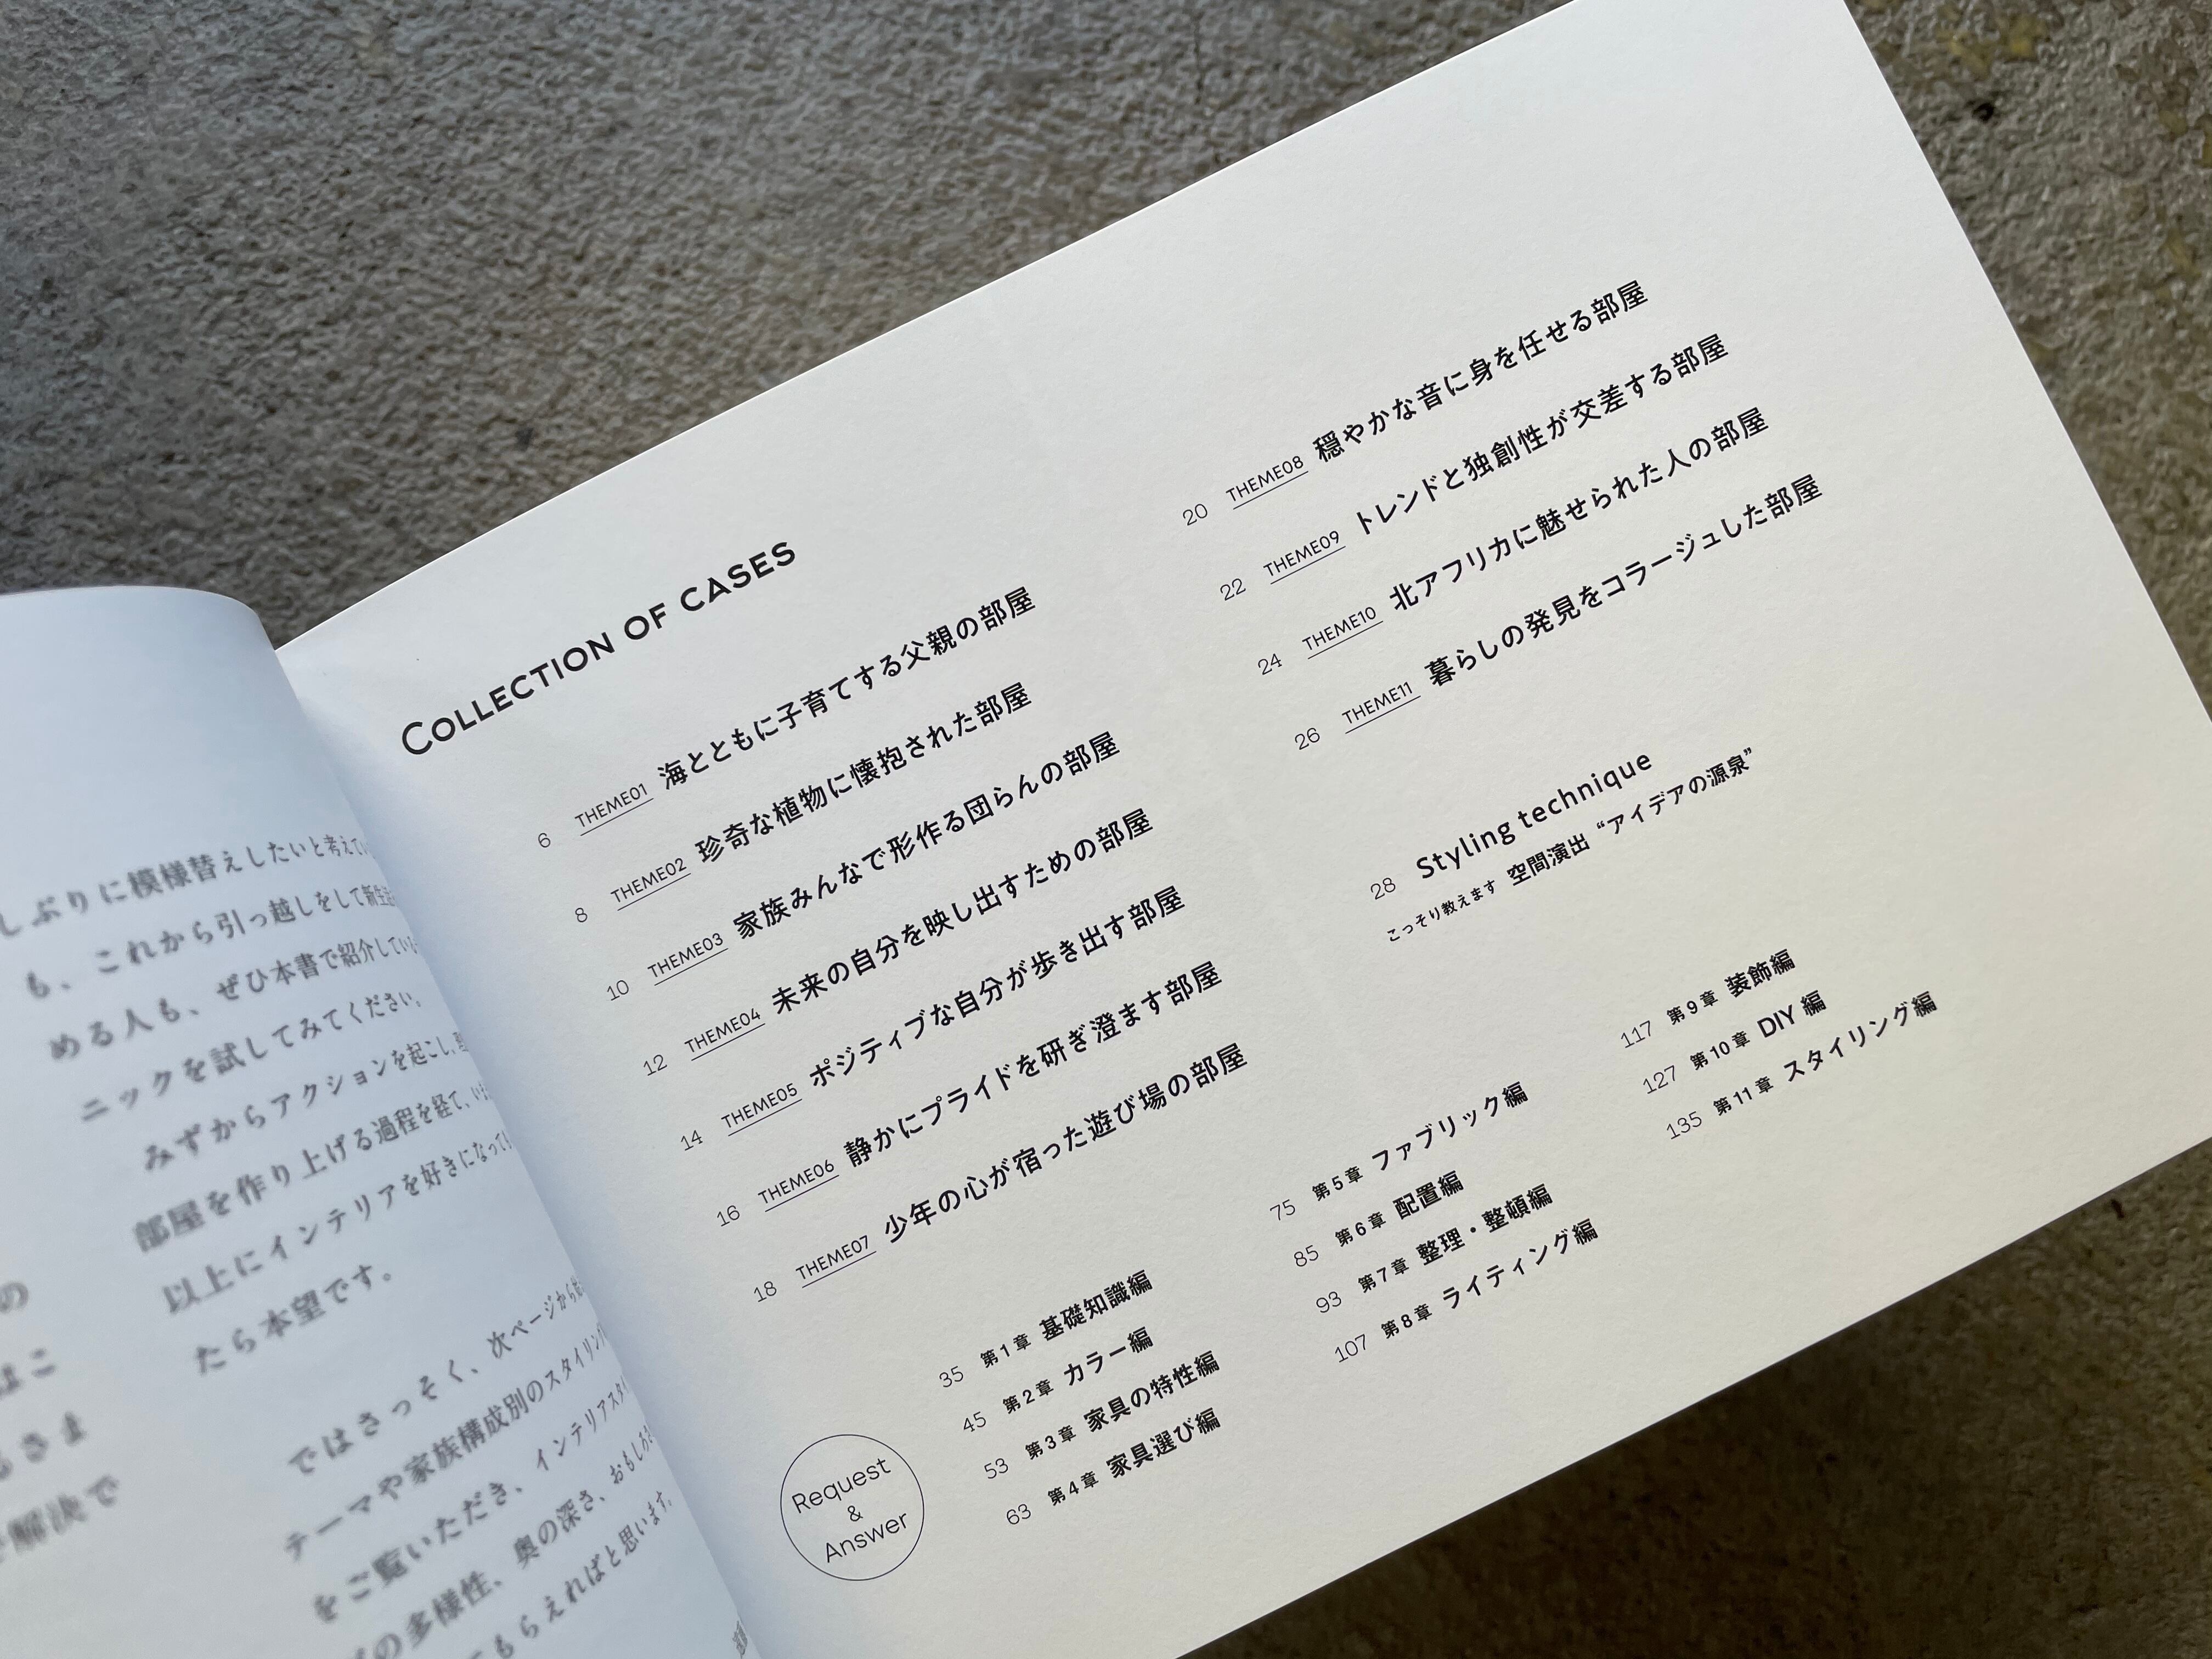 しぶりに模様替えしたいと考えてい
も、これから引っ越しをして新生活
める人も、ぜひ本書で紹介している
ニックを試してみてください。
みずからアクションを起こし、
部屋を作り上げる過程を経て、
以上にインテリアを好きになって
たら本望です。
ではさっそく、次ページから
テーマや家族構成別のスタイリング
をご覧いただき、インテリアスタ
の多様性、奥の深さ、おもしろさ
てもらえればと思います。
の
はこ
るさま
解決で
COLLECTION OF CASES
6 THEME01 海とともに子育てする父親の部屋
8 THEME02 珍奇な植物に懐抱された部屋
10 THEME03 家族みんなで形作る団らんの部屋
12 THEME04 未来の自分を映し出すための部屋
14 THEME05 ポジティブな自分が歩き出す部屋
16 THEME06 静かにプライドを研ぎ澄ます部屋
18 THEME07 少年の心が宿った遊び場の部屋
20 THEME08 穏やかな音に身を任せる部屋
22 THEME09 トレンドと独創性が交差する部屋
24 THEME10 北アフリカに魅せられた人の部屋
26 THEME11 暮らしの発見をコラージュした部屋
28 Styling technique
こっそり教えます 空間演出“アイデアの源泉”
Request
&
Answer
35 第1章 基礎知識編
45 第2章 カラー編
53 第3章 家具の特性編
63 第4章 家具選び編
75 第5章 ファブリック編
85 第6章 配置編
93 第7章 整理・整頓編
107 第8章 ライティング編
117 第9章 装飾編
127 第10章 DIY 編
135 第11章 スタイリング編